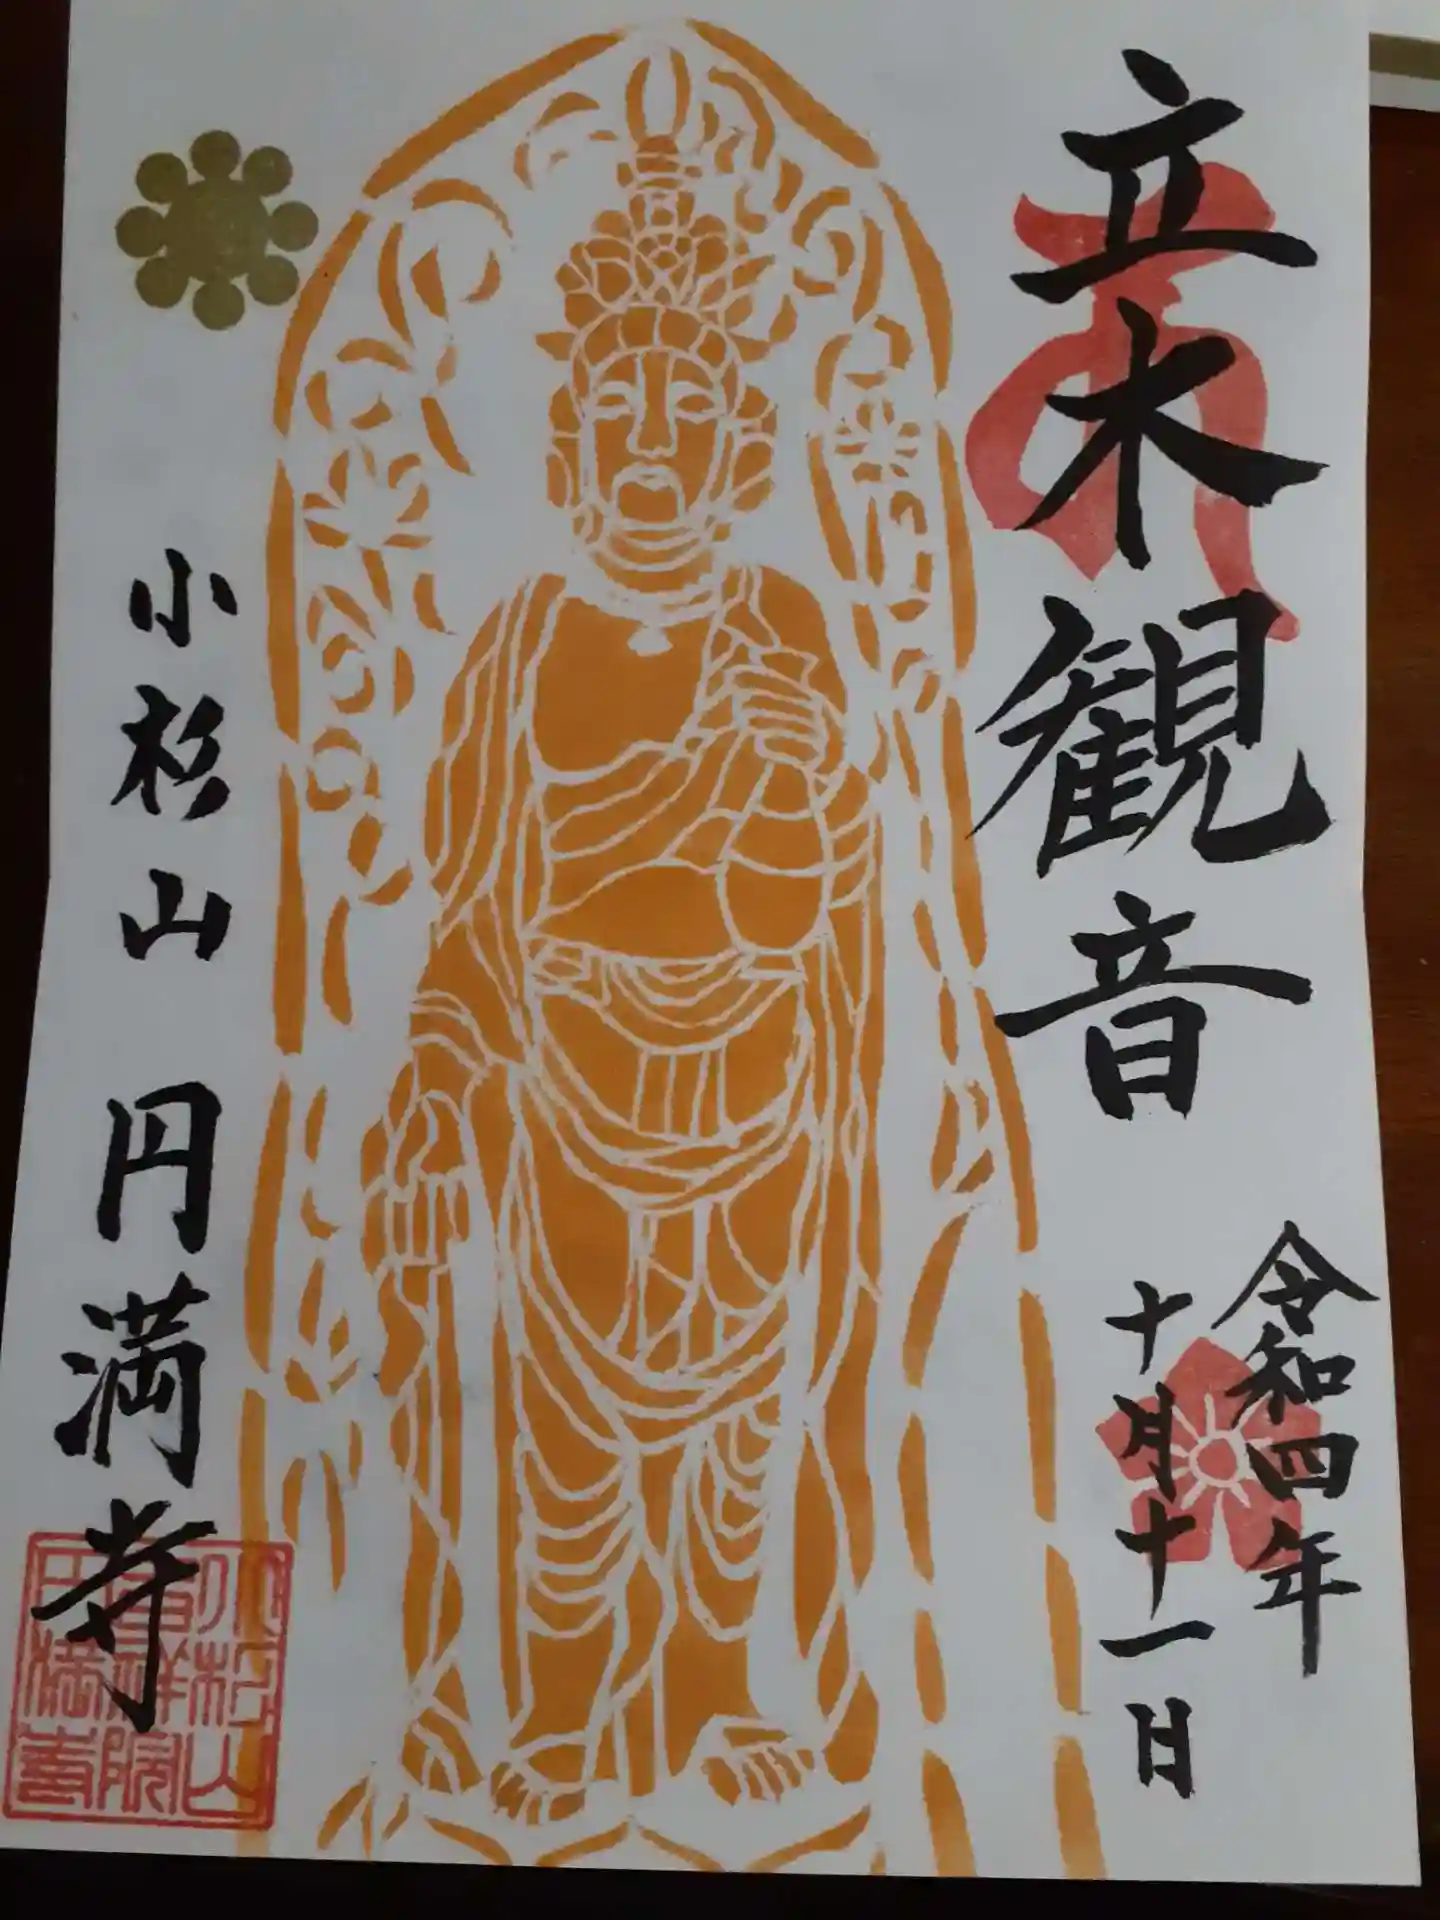 立木観音
令和四年
十月十一日
小杉山 円満寺
小杉山
吉祥院
円満寺